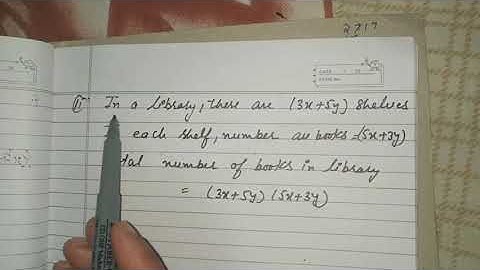 In a library, there are (3x+5y) shelves
each shelf, number are books = (5x+3y)
number of books in library
= (3x+5y) (5x+3y)